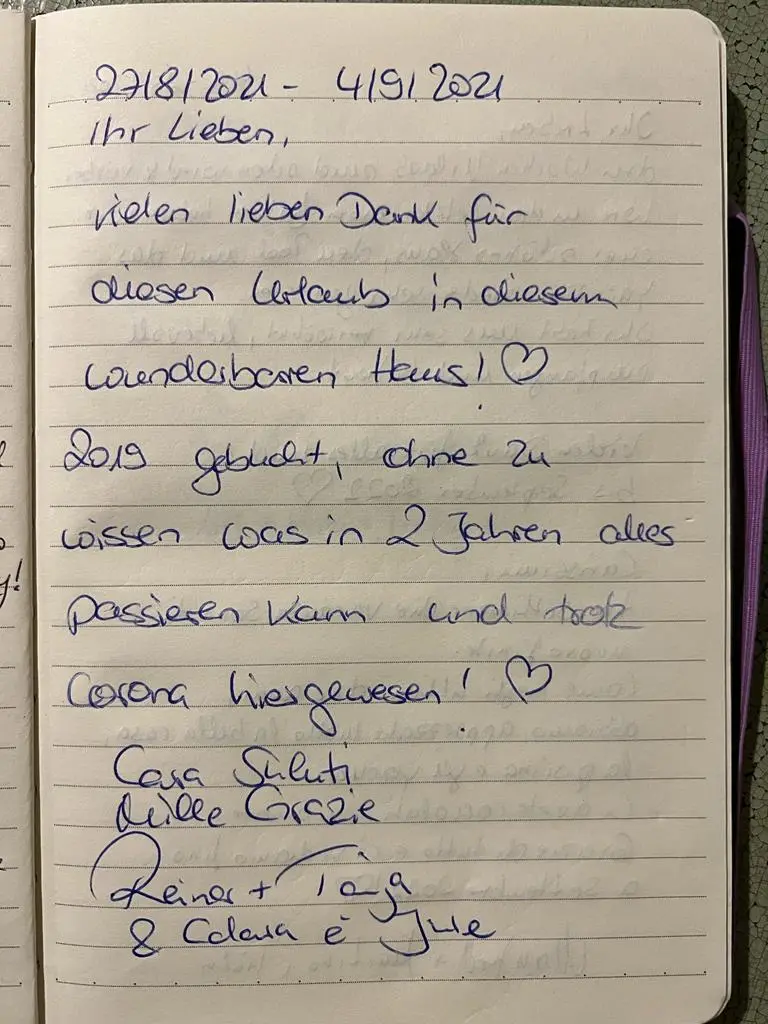 27/8/2021 - 4/9/2021
Ihr Lieben,
vielen lieben Dank für
diesen Urlaub in diesem
wunderbaren Haus! ♡
2019 gebucht, ohne zu
wissen was in 2 Jahren alles
passieren kann und trotz
Corona hiergewesen! ♡
Cara Saluti
Mille Grazie
Reiner + Tanja
& Clara e Jule